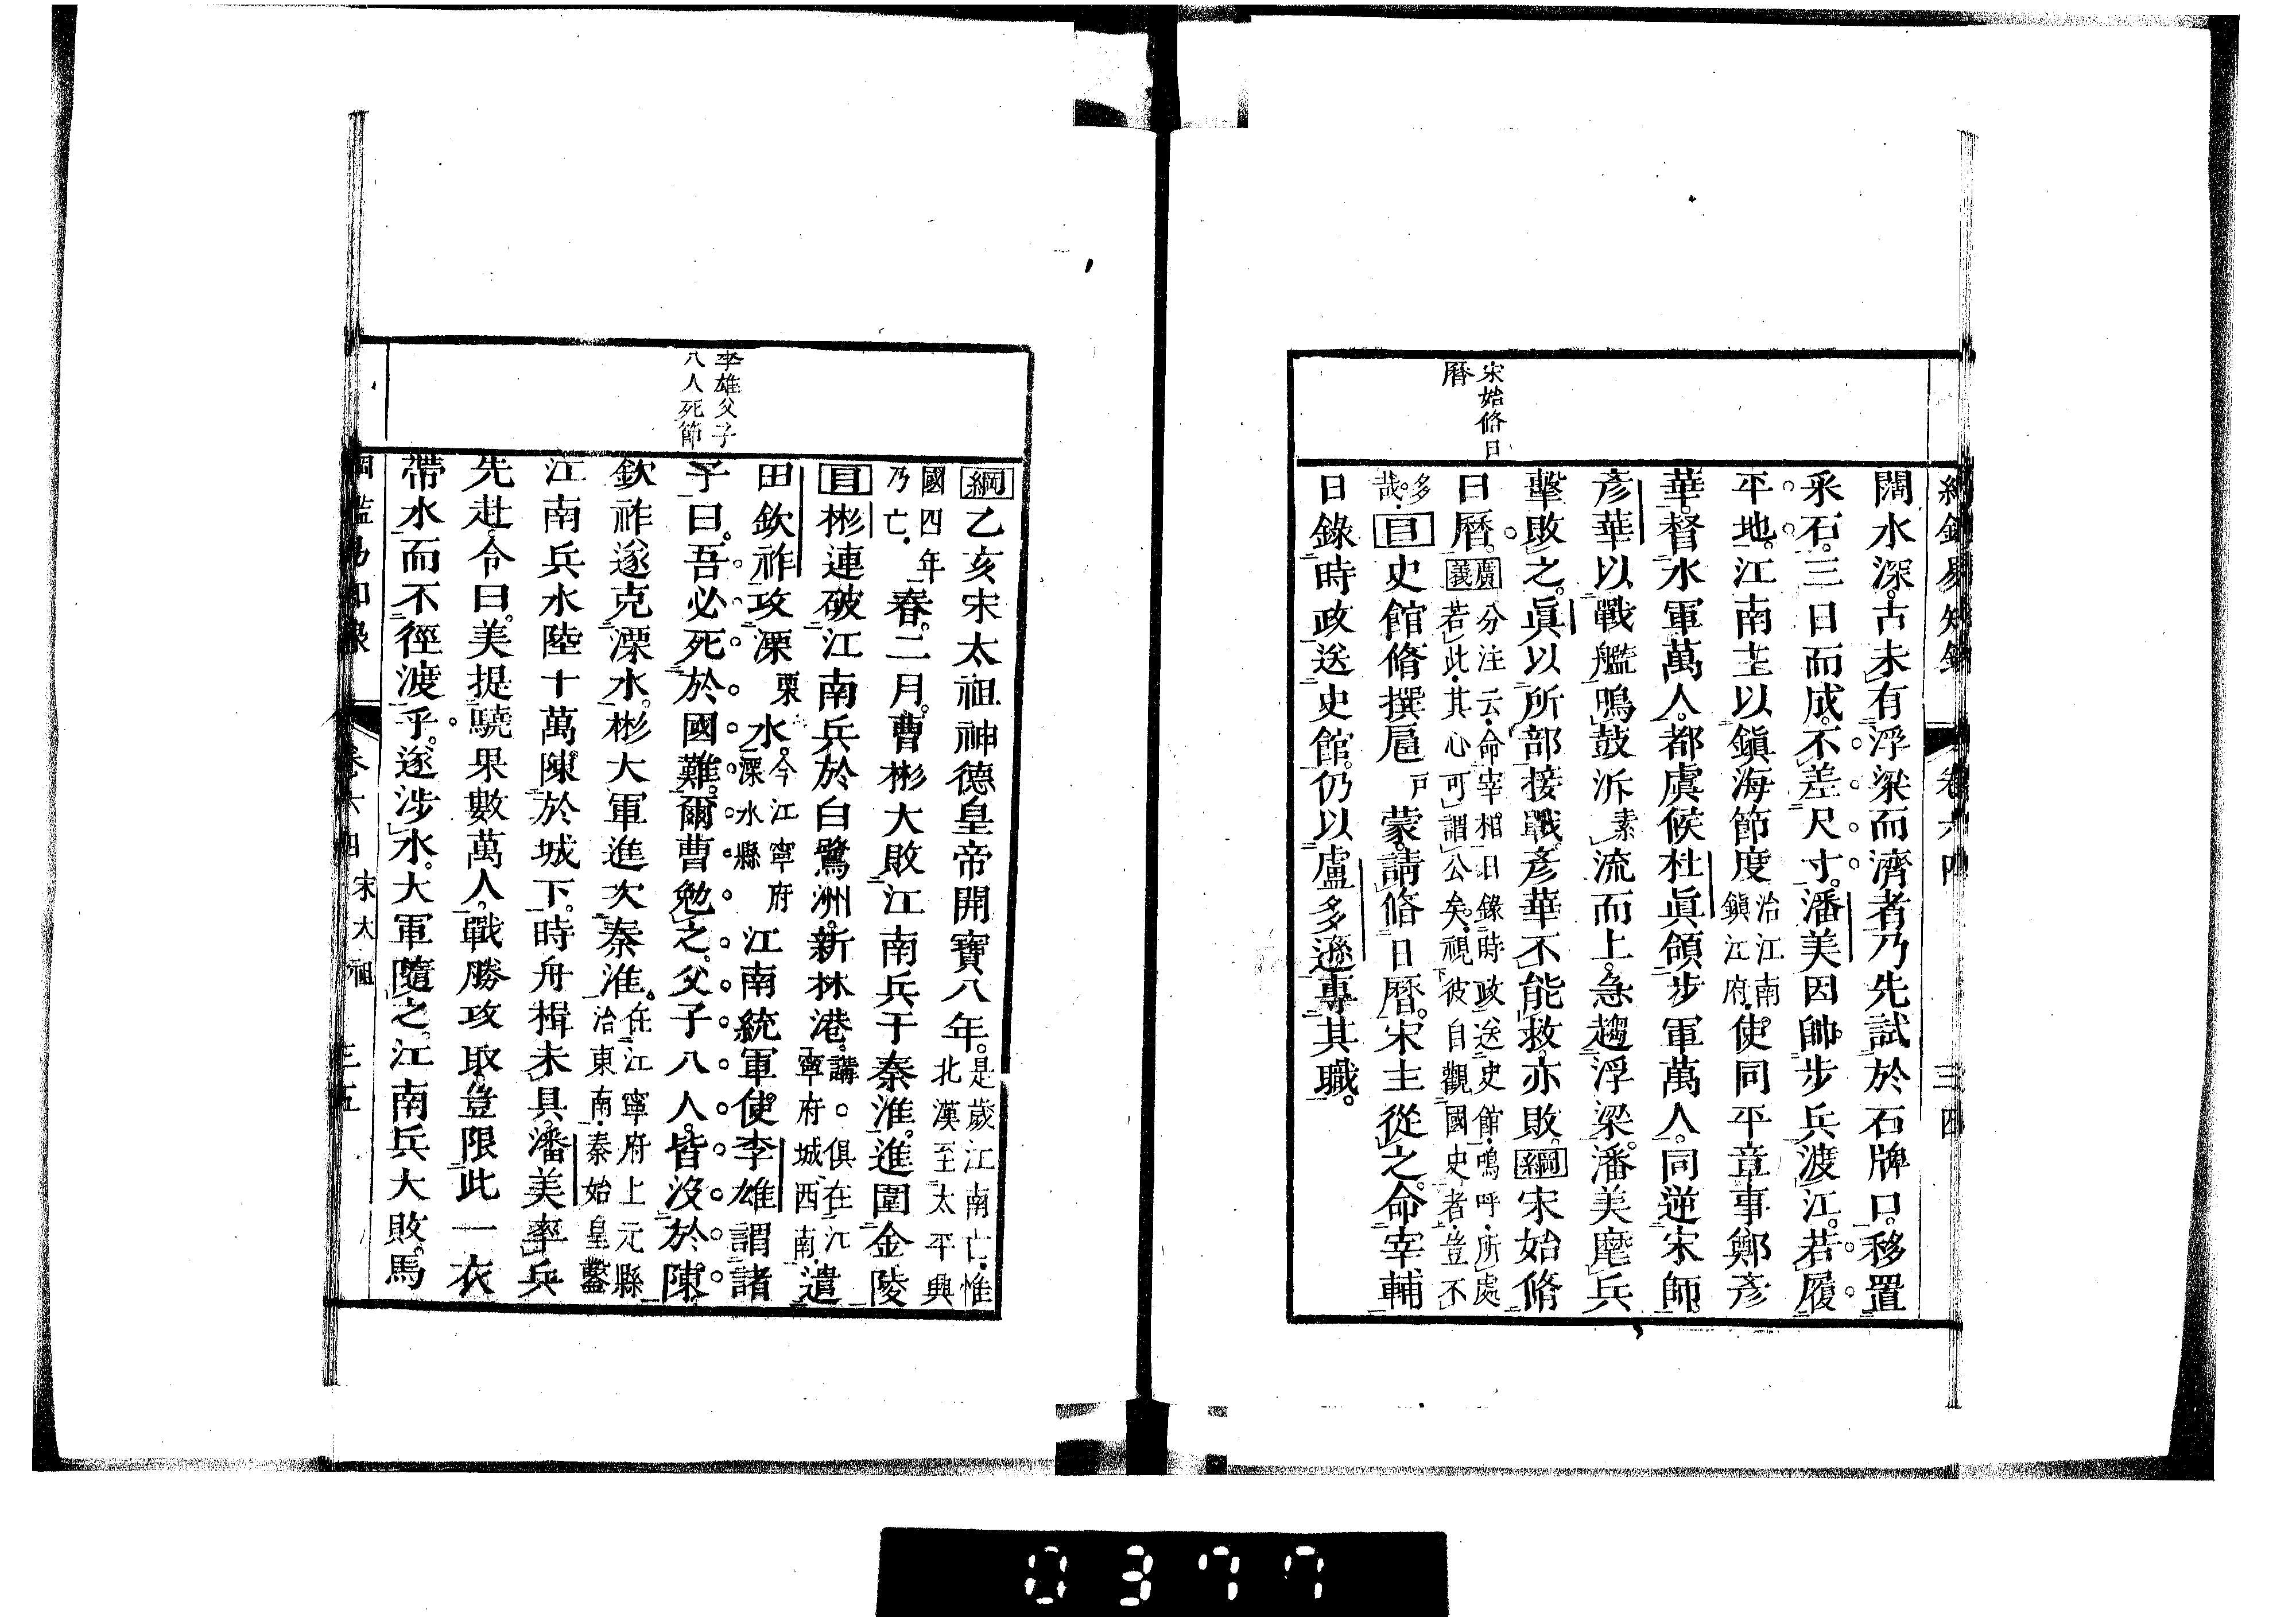 綱鑑易知錄 卷六四 三四
宋始脩日
曆
闊水深。古未有浮梁而濟者。乃先試於石牌口。移置
采石。三日而成。不差尺寸。潘美因帥步兵渡江。若履
平地。江南主以鎮海節度治江南鎮江府。使同平章事鄭彥
華。督水軍萬人。都虞候杜眞領步軍萬人。同逆宋師。
彥華以戰艦鳴鼓泝素流而上。急趨浮梁。潘美麾兵
擊敗之。眞以所部接戰。彥華不能救。亦敗。綱宋始脩
日曆。廣義分注云。命宰相日錄時政。送史館。嗚呼。所處若此。其心可謂公矣。視彼自觀國史者。豈不
多哉。目史館脩撰扈戸蒙。請脩日曆。宋主從之。命宰輔
日錄時政送史館。仍以盧多遜專其職。
李雄父子
八人死節
綱乙亥宋太祖神德皇帝開寶八年。是歲江南亡。惟北漢至太平興
國四年乃亡。春。二月。曹彬大敗江南兵于秦淮。進圍金陵
目彬連破江南兵於白鷺洲。新林港。講。俱在江寧府城西南。遣
田欽祚攻溧栗水。今江寧府溧水縣江南統軍使李雄謂諸
子曰。吾必死於國難。爾曹勉之。父子八人。皆沒於陳。
欽祚遂克溧水。彬大軍進次秦淮。在江寧府上元縣治東南。秦始皇鑿
江南兵水陸十萬。陳於城下。時舟楫未具。潘美率兵
先赴。令曰。美提驍果數萬人。戰勝攻取。豈限此一衣
帶水而不徑渡乎。遂涉水。大軍隨之。江南兵大敗。馬
綱鑑易知錄 卷六四 宋太祖 三五
0377